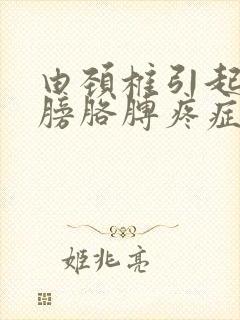 由颈椎引起
膀胳膊疼症
姬兆亮